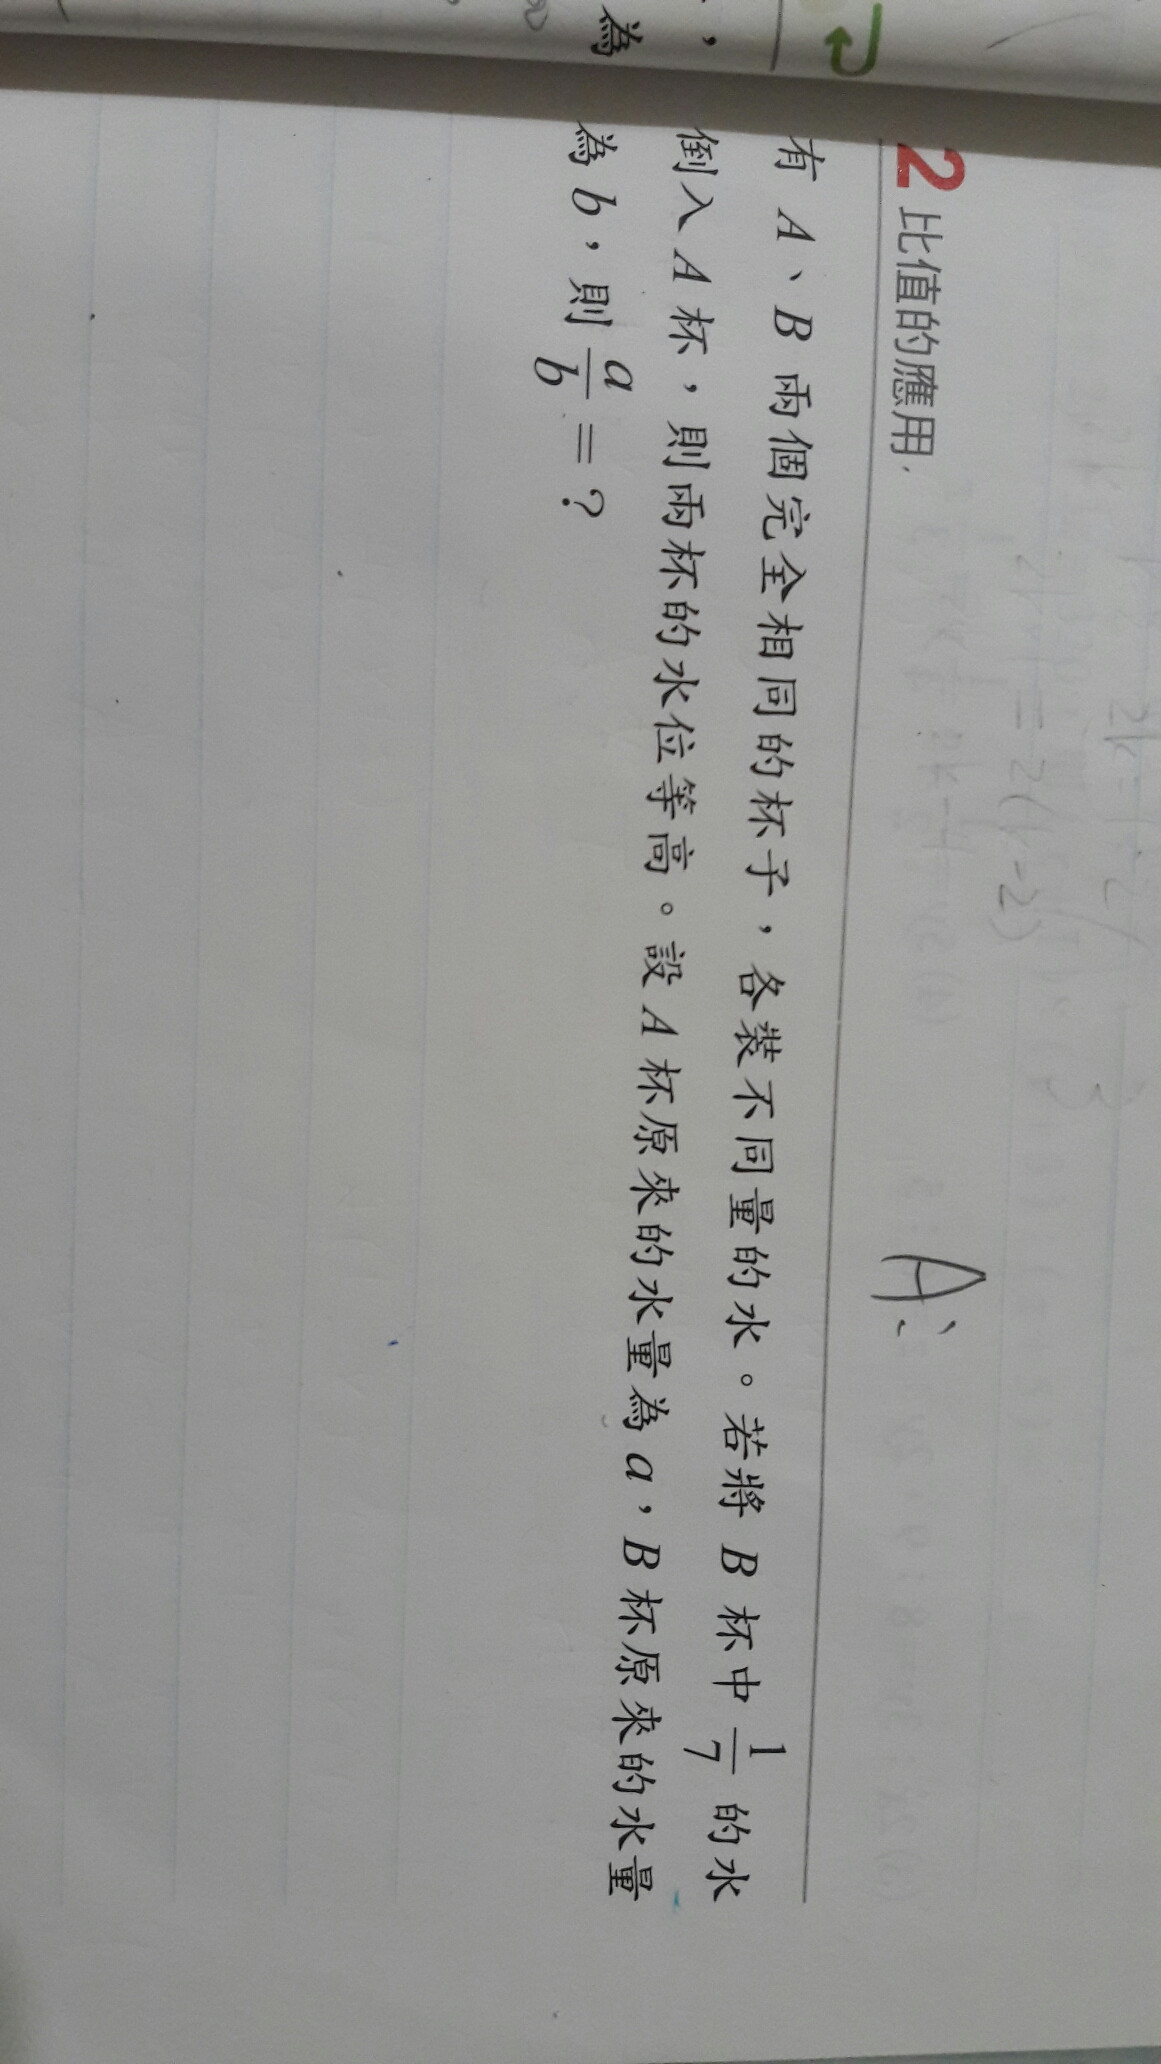 2 比值的應用
A:
有 A、B 兩個完全相同的杯子,各裝不同量的水。若將 B 杯中 1/7 的水
倒入 A 杯,則兩杯的水位等高。設 A 杯原來的水量為 a,B 杯原來的水量
為 b,則 a/b = ?
為